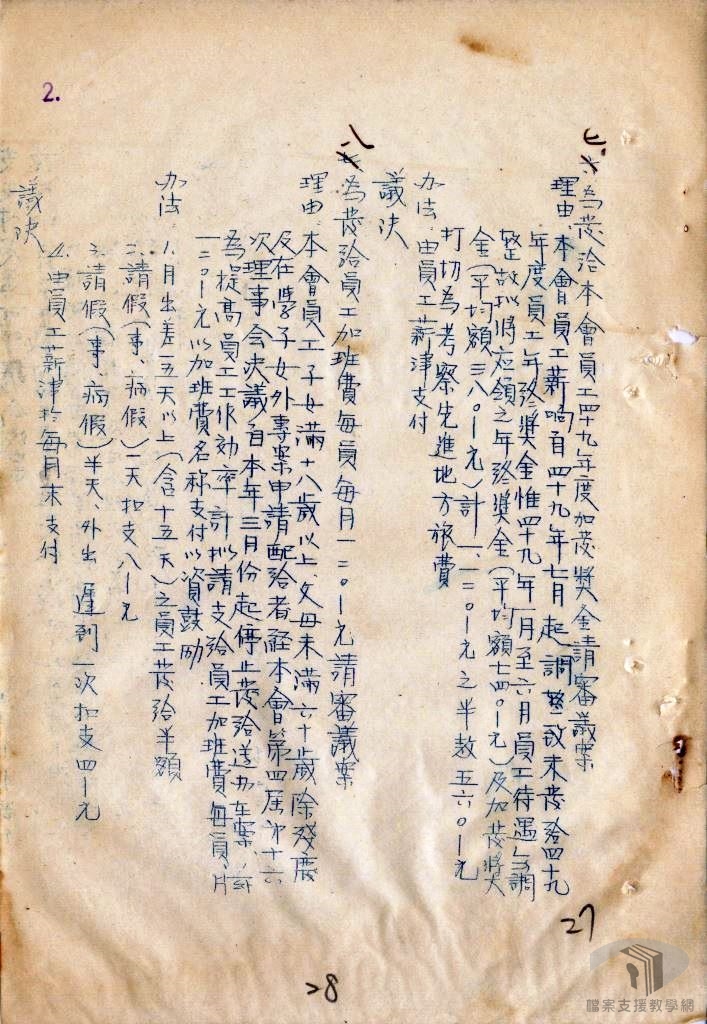 2.
七、為發給本會員工四十九年度加發獎金請審議案
理由:本會員工薪响自四十九年七月起調整致未發給四十九
年度員工年終獎金惟四十九年一月至六月員工待遇与調
整故拟將应領之年終獎金(平均額七四〇—元)及加發獎
金(平均額三八〇—元)計一、一二〇—元之半数五六〇—元
打切為考察先進地方旅費
办法:由員工薪津支付
議決
八、為發給員工加班費每員每月一二〇—元請審議案
理由:本會員工子女滿十八歲以上、父母未滿六十歲除殘廢
及在學子女外專案申請配給者経本會第四屆第十六
次理事会決議自本年三月份起停止發給送办在案、茲
為提高員工工作効率計拟請支給員工加班費每員、月
一二〇—元以加班費名称支付以資鼓励
办法 1.月出差一五天以上(含十五天)之員工發給半額
2.請假(事、病假)一天扣支八—元
3.請假(事、病假)半天、外出 遲到一次扣支四—元
4.由員工薪津於每月末支付
議決
27
28
檔案支援教學網